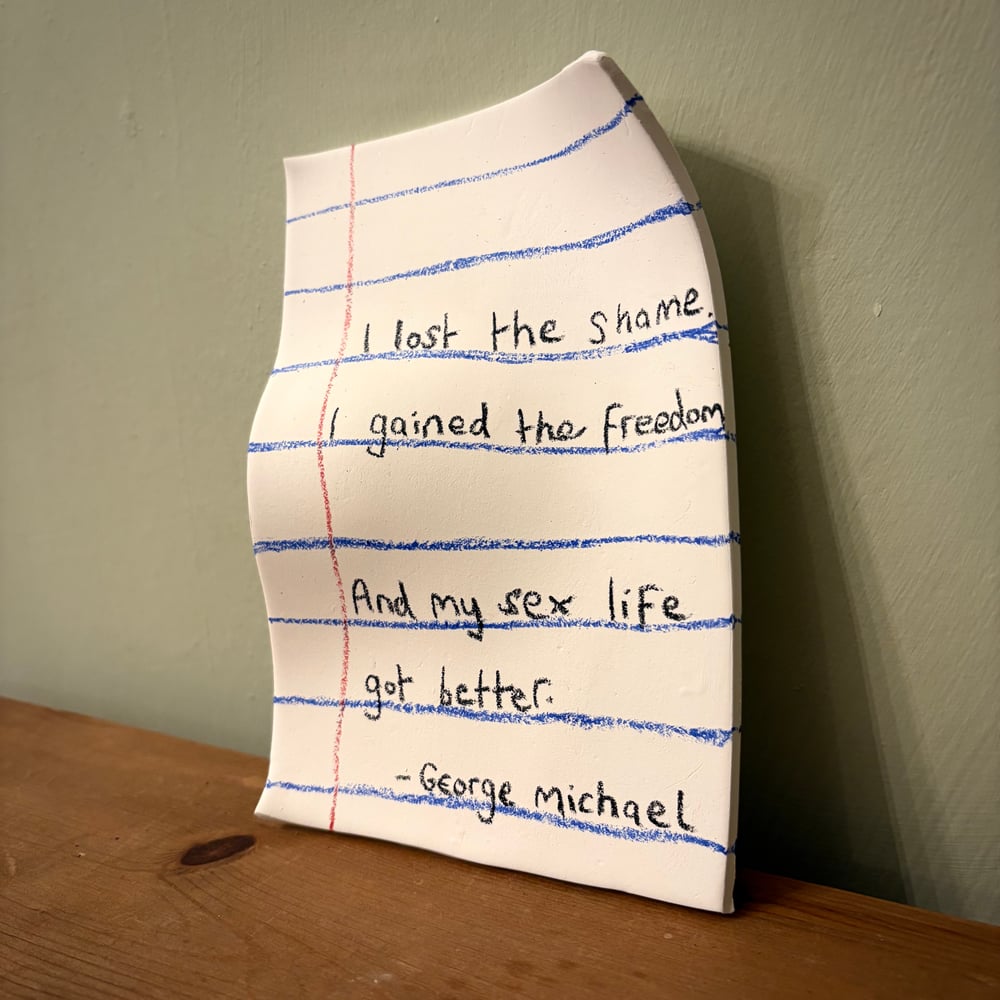 I lost the shame.
I gained the freedom
And my sex life
got better.
- George Michael